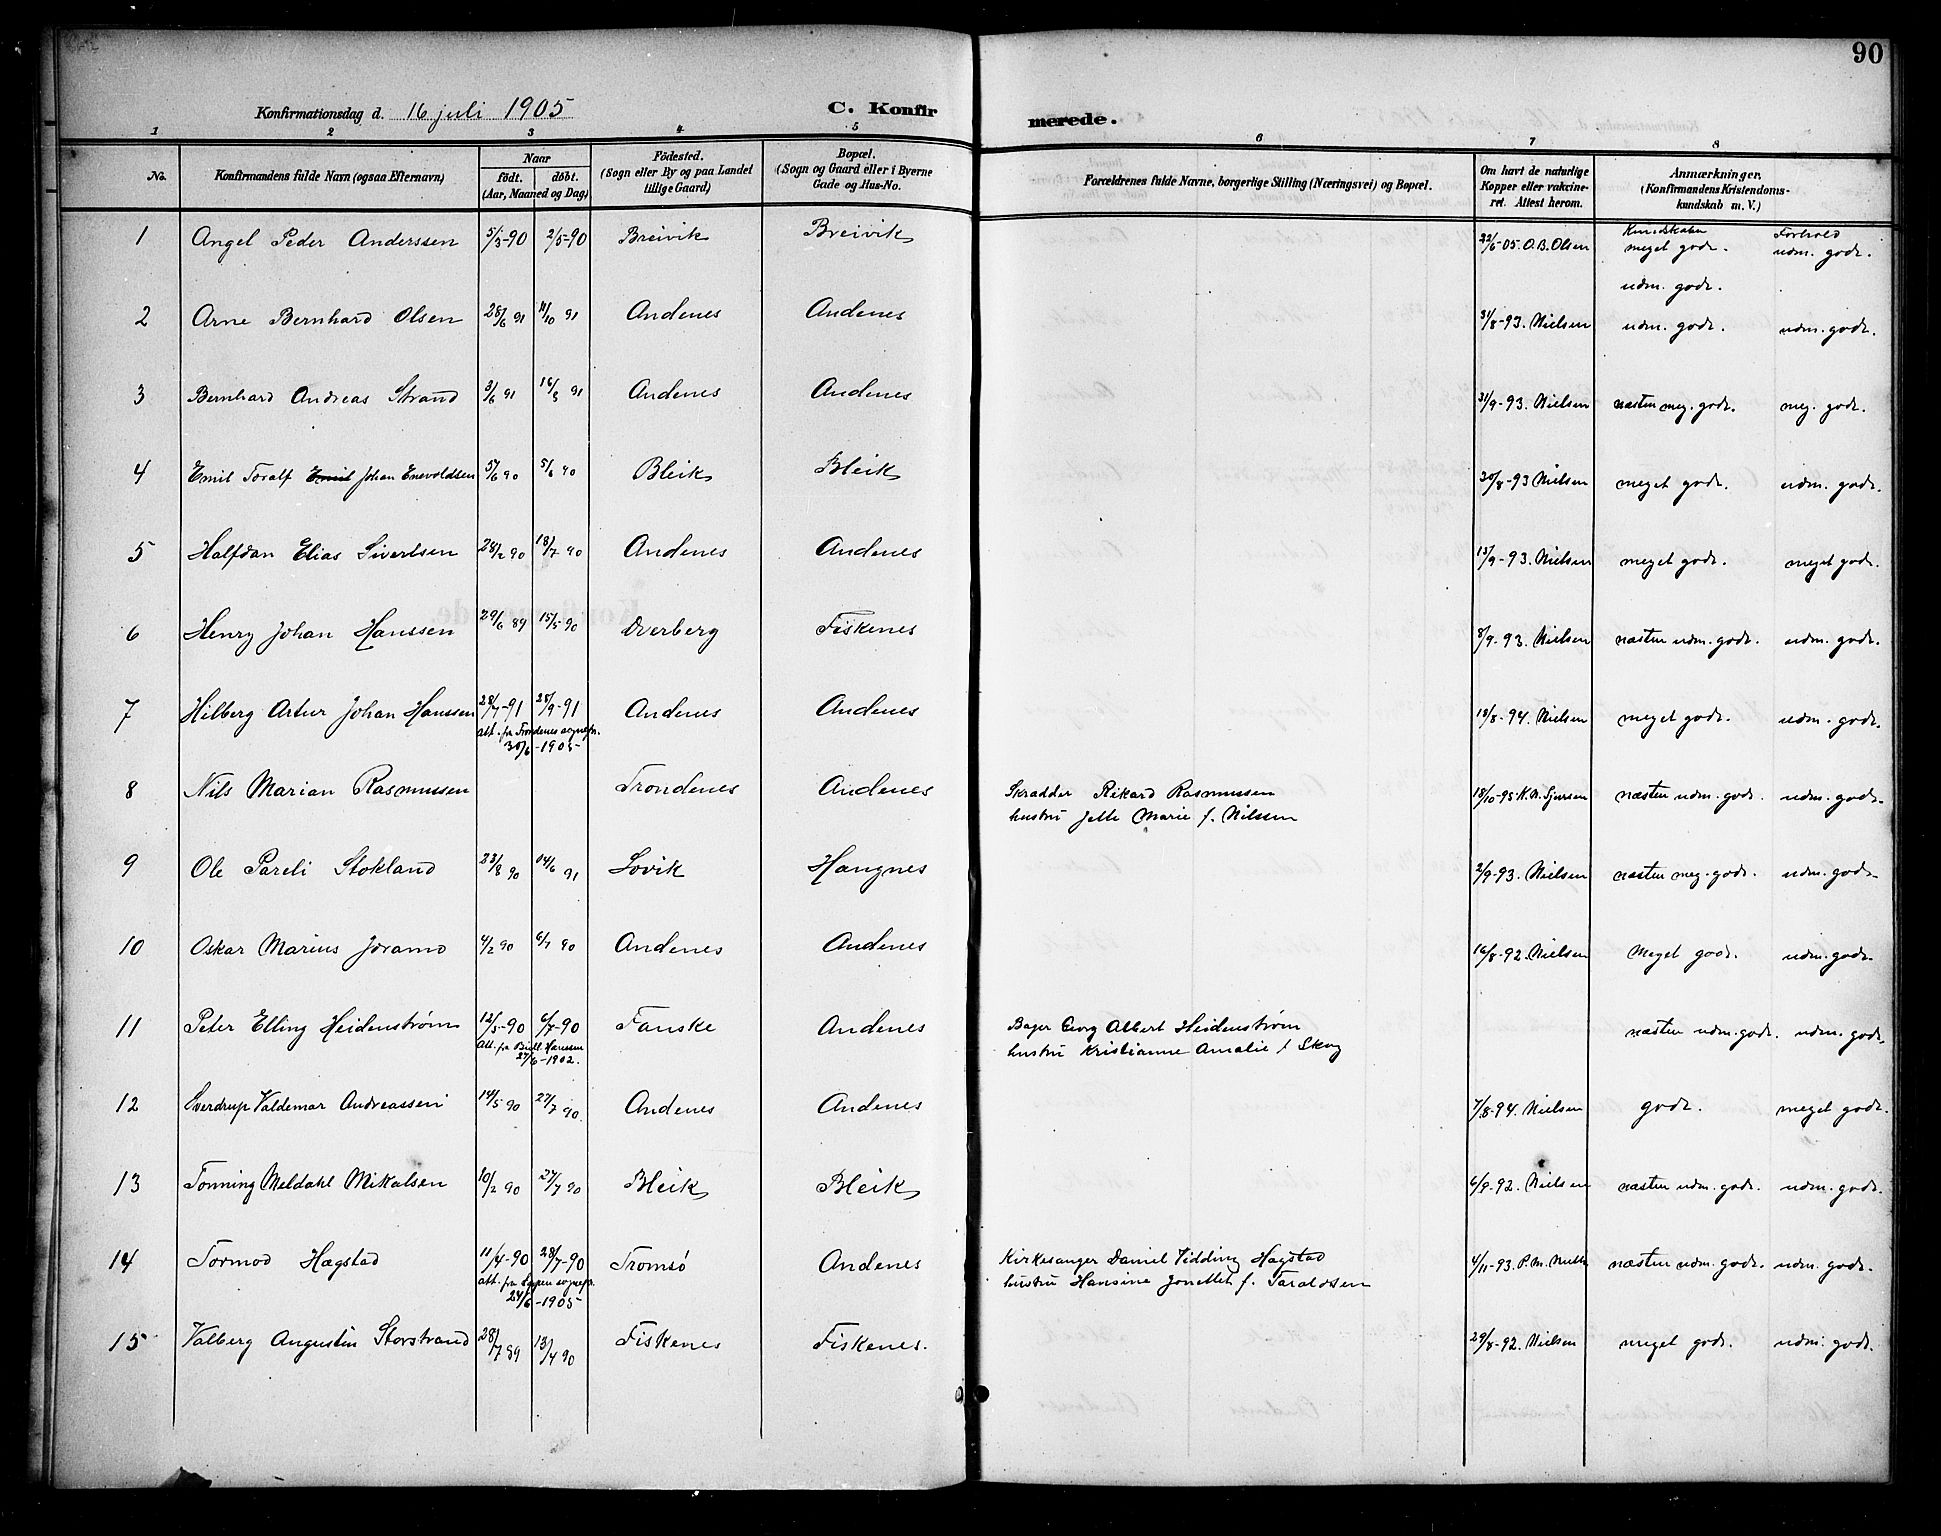 90
Konfirmationsdag d. 16 juli 1905 C. Konfirmerede.
1 2 3 4 5 6 7 8
No. Konfirmandens fulde Navn (ogsaa Efternavn) Naar født. døbt. (Aar, Maaned og Dag) Fødested. (Sogn eller By og paa Landet tillige Gaard) Bopæl. (Sogn og Gaard eller i Byerne Gade og Hus-No. Forældrenes fulde Navne, borgerlige Stilling (Næringsvei) og Bopæl. Om havt de naturlige Kopper eller vakcineret. Attest herom. Anmærkninger. (Konfirmandens Kristendomskundskab m. V.)
Kundskaber Forhold
1 Angel Peder Anderssen 5/3-90 2/5-90 Breivik Breivik 22/6-05. O.B. Olsen meget godt. udm. godt.
udm. godt.
2 Arne Bernhard Olsen 28/6 91 11/10 91 Andenes Andenes 31/8-93. Nielsen udm. godt. udm. godt.
3 Bernhard Andreas Strand 3/6 91 16/8 91 Andenes Andenes 31/9-93. Nielsen næsten meg. godt. meg. godt.
4 Emil Toralf Emil Johan Enevoldsen 90 5/6 90 Bleik Bleik 30/8-93 Nielsen meget godt. udm. godt.
5 Halfdan Elias Sivertsen 28/2 90 18/7 90 Andenes Andenes 13/9-93. Nielsen meget godt. meget godt.
6 Henry Johan Hanssen 29/6 89 15/5-90 Dverberg Fiskenes 8/9-93. Nielsen næsten udm. godt. udm. godt.
7 Hilberg Artur Johan Hanssen 28/7-91 28/9-91 Andenes Andenes 18/8-94. Nielsen meget godt. udm. godt.
att. fra Trondenes sognepr.
30/6-1905
8 Nils Marian Rasmussen Trondenes Andenes Skrædder Rikard Rasmussen 18/10-95 K.N. Sjursen næsten udm. godt. udm. godt.
hustru Jelle Marie f. Nilssen
9 Ole Pareli Stokland 23/8 90 04/6 91 Lovik Haugnes 2/9-93. Nielsen næsten meg. godt. udm. godt.
10 Oskar Marius Joramo 4/2 90 6/7 90 Andenes Andenes 16/8-92. Nielsen Meget godt. udm. godt.
11 Peter Elling Heidenstrøm 12/5-90 6/7-90 Fauske Andenes Bager Georg Albert Heidenstrøm næsten udm. godt. udm. godt.
Att. fra Hanssen hustru Kristianne Amalie f Skog
27/6-1902.
12 Sverdrup Valdemar Andreassen 14/5 90 27/7 90. Andenes Andenes 7/8-94. Nielsen godt. meget godt.
13 Tonning Meldahl Mikalsen 10/2 90 27/7 90 Bleik Bleik 6/9-92. Nielsen næsten udm. godt. udm. godt.
14 Tormod Hagstad 11/4-90 28/7-90 Tromsø Andenes Kirkesanger Daniel Vidding Hagstad 4/11-93. P.M. næsten udm. godt. udm. godt.
att. fra sognepr. hustru Hansine Jonette f. Taraldsen
24/6-1905
15 Valberg Augustin Storstrand 28/7 89 13/4 90 Fiskenes Fiskenes. 29/8-92. Nielsen meget godt. udm. godt.